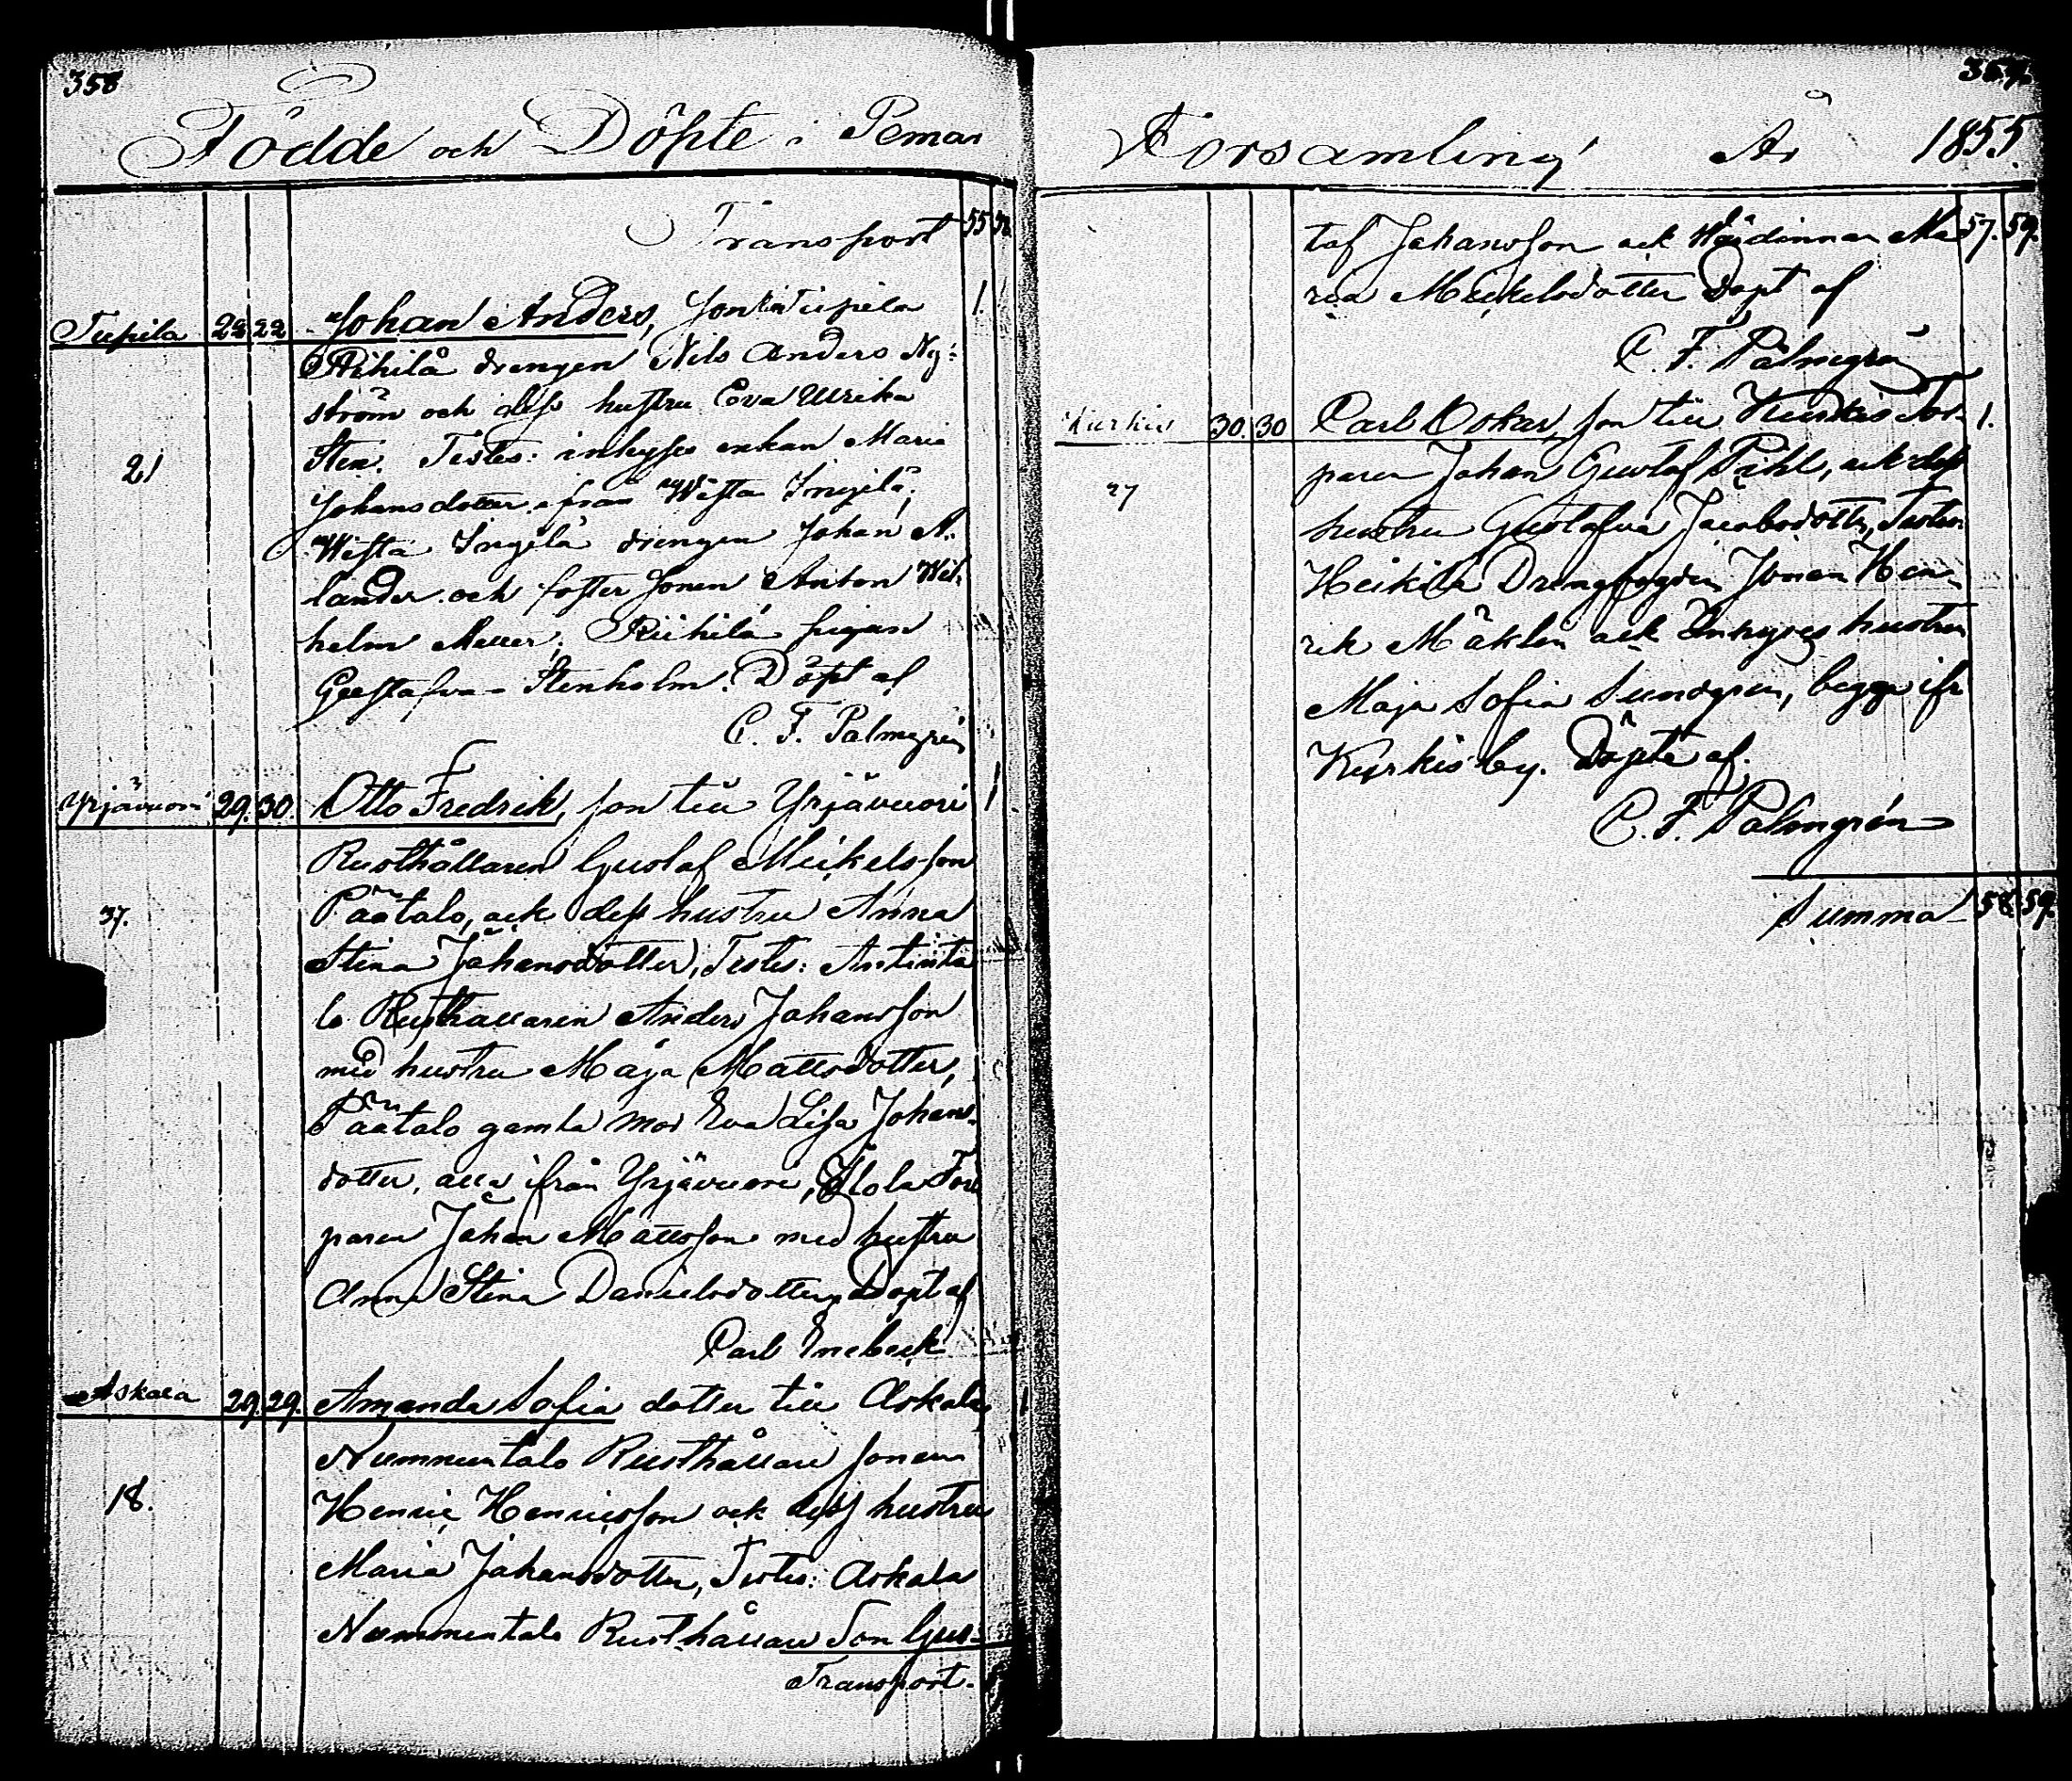 358
Födde och Döpte i Pemar
Transport 55
Tiipilä 22 22 Johan Anders, son till Tiipilä 1.
Riihilä drengen Nils Anders Ny-
ström och dess hustru Eva Ulrika
21 Sten. Testes: inhyses enkan Maria
Johansdotter från Westa Ingilä,
Westa Ingilä drengen Johan A.
lander och foster sonen Anton Wil-
helm Meller, Riihilä pigan
Gustafva Stenholm. Döpt af
C. F. Palmgrén
Yrjävuori 29. 30. Otto Fredrik, son till Yrjävuori 1
Rusthållaren Gustaf Mickelsson
37. Päätalo, ock dess hustru Anna
Stina Johansdotter, Testes: Antinta
lo Rusthållaren Anders Johansson
med hustru Maja Mattsdotter,
Päätalo gamla mor Eva Lisa Johans-
dotter, alla ifrån Yrjävuori, Tor
paren Johan Mattsson med hustru
Anna Stina Danielsdotter, Döpt af
Carl Enebeck
Askala 29. 29. Amanda Sofia dotter till Askala 1
Nummentalo Rusthållare sonen
18. Henric Henricsson ock dess hustru
Maria Johansdotter, Testes: Askala
Nummentalo Rusthållare Son Gus-
Transport.
359
Församling År 1855.
taf Johansson ock Wärdinnan Ma 57. 59.
ria Mickelsdotter Döpt af
C. F. Palmgrén
Kurkis 30. 30 Carl Oskar, son till Kurkis Tor- 1.
paren Johan Gustaf Pihl, ock dess
27 hustru Gustafva Jacobsdotter, Testes
Heikilä Drengfogden Johan Hen-
rik Mäklin ock Inhyses hustrun
Maja Sofia Sundgren, begge ifr
Kurkis by. Döpte af.
C. F. Palmgrén
Summa 58. 59.